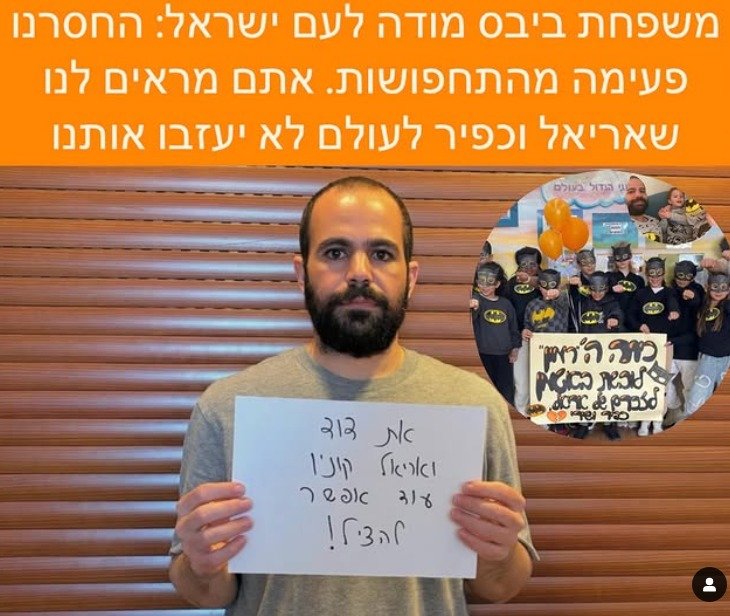 משפחת ביבס מודה לעם ישראל: החסרנו
פעימה מהתחפושות. אתם מראים לנו
שאריאל וכפיר לעולם לא יעזבו אותנו
את דוד
ואריאל קוניו
עוד אפשר
להציל!
הגדול בעולם
כיתה ה'1 רימון"
לובשת באטמן
לזכרם של אריאל
כפיר ושירי